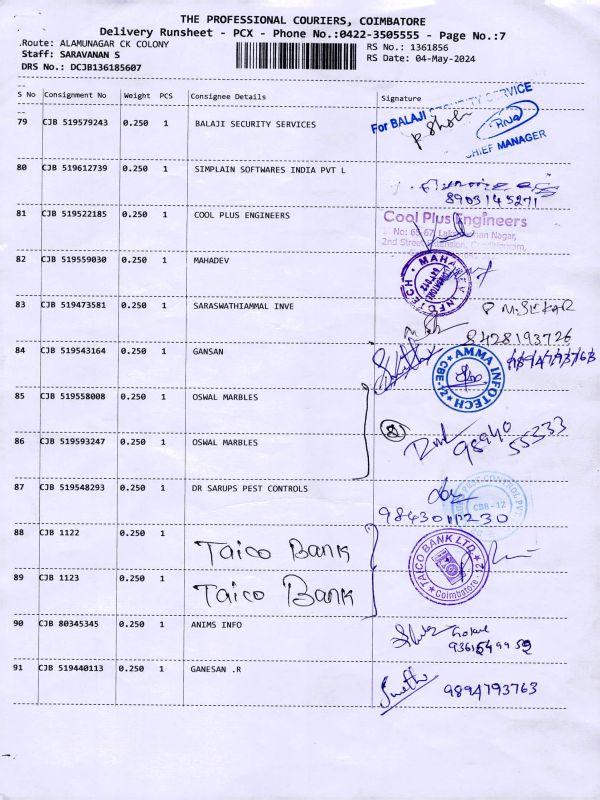 THE PROFESSIONAL COURIERS, COIMBATORE
Delivery Runsheet - PCX - Phone No.:0422-3505555 - Page No.:7
Route: ALAMUNAGAR CK COLONY RS No.: 1361856
Staff: SARAVANAN S RS Date: 04-May-2024
DRS No.: DCJB136185607
S No Consignment No Weight PCS Consignee Details Signature
79 CJB 519579243 0.250 1 BALAJI SECURITY SERVICES For BALAJI SECURITY SERVICE
CHIEF MANAGER
80 CJB 519612739 0.250 1 SIMPLAIN SOFTWARES INDIA PVT L
8903145271
81 CJB 519522185 0.250 1 COOL PLUS ENGINEERS Cool Plus Engineers
82 CJB 519559030 0.250 1 MAHADEV
83 CJB 519473581 0.250 1 SARASWATHIAMMAL INVE
8428193726
84 CJB 519543164 0.250 1 GANSAN AMMA INFOTECH CBE-12
85 CJB 519558008 0.250 1 OSWAL MARBLES
86 CJB 519593247 0.250 1 OSWAL MARBLES 98940 55333
87 CJB 519548293 0.250 1 DR SARUPS PEST CONTROLS CBE-12
88 CJB 1122 0.250 1 Taico Bank TAICO BANK LTD. Coimbatore - 12
89 CJB 1123 0.250 1 Taico Bank
90 CJB 80345345 0.250 1 ANIMS INFO
91 CJB 519440113 0.250 1 GANESAN .R 9894793763